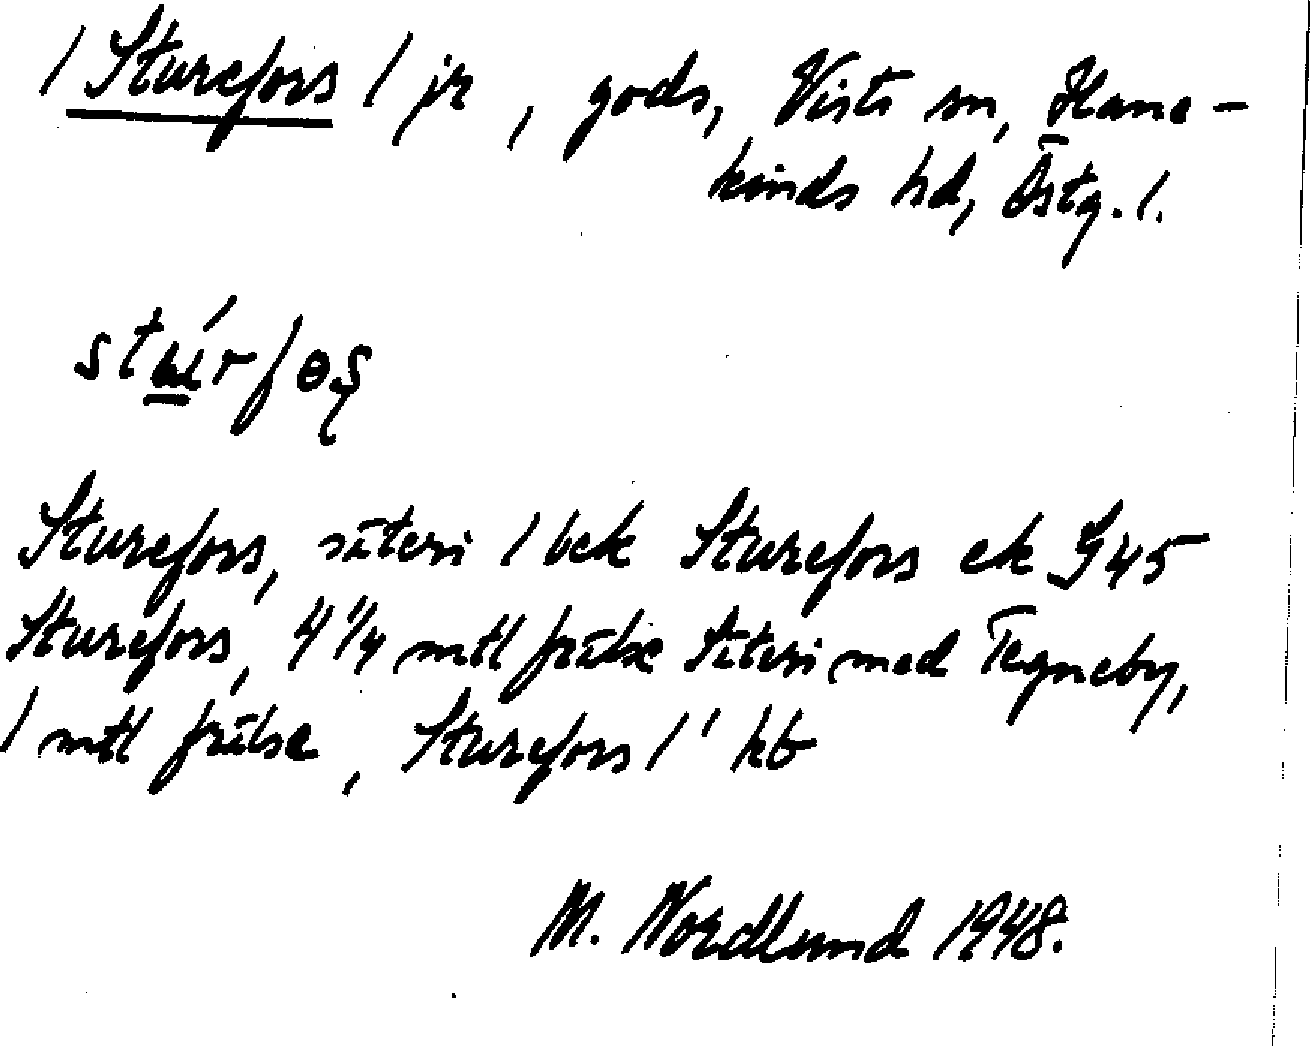 / Sturefors / jr, gods, Vists sn, Hane-
kinds hd, Östg. l.
Sturefors, säteri / bek Sturefors ek J 45
Sturefors, 4 1/4 mtl frälse säteri med Tegneby,
1 mtl frälse, Sturefors / kb
M. Nordlund 1948.